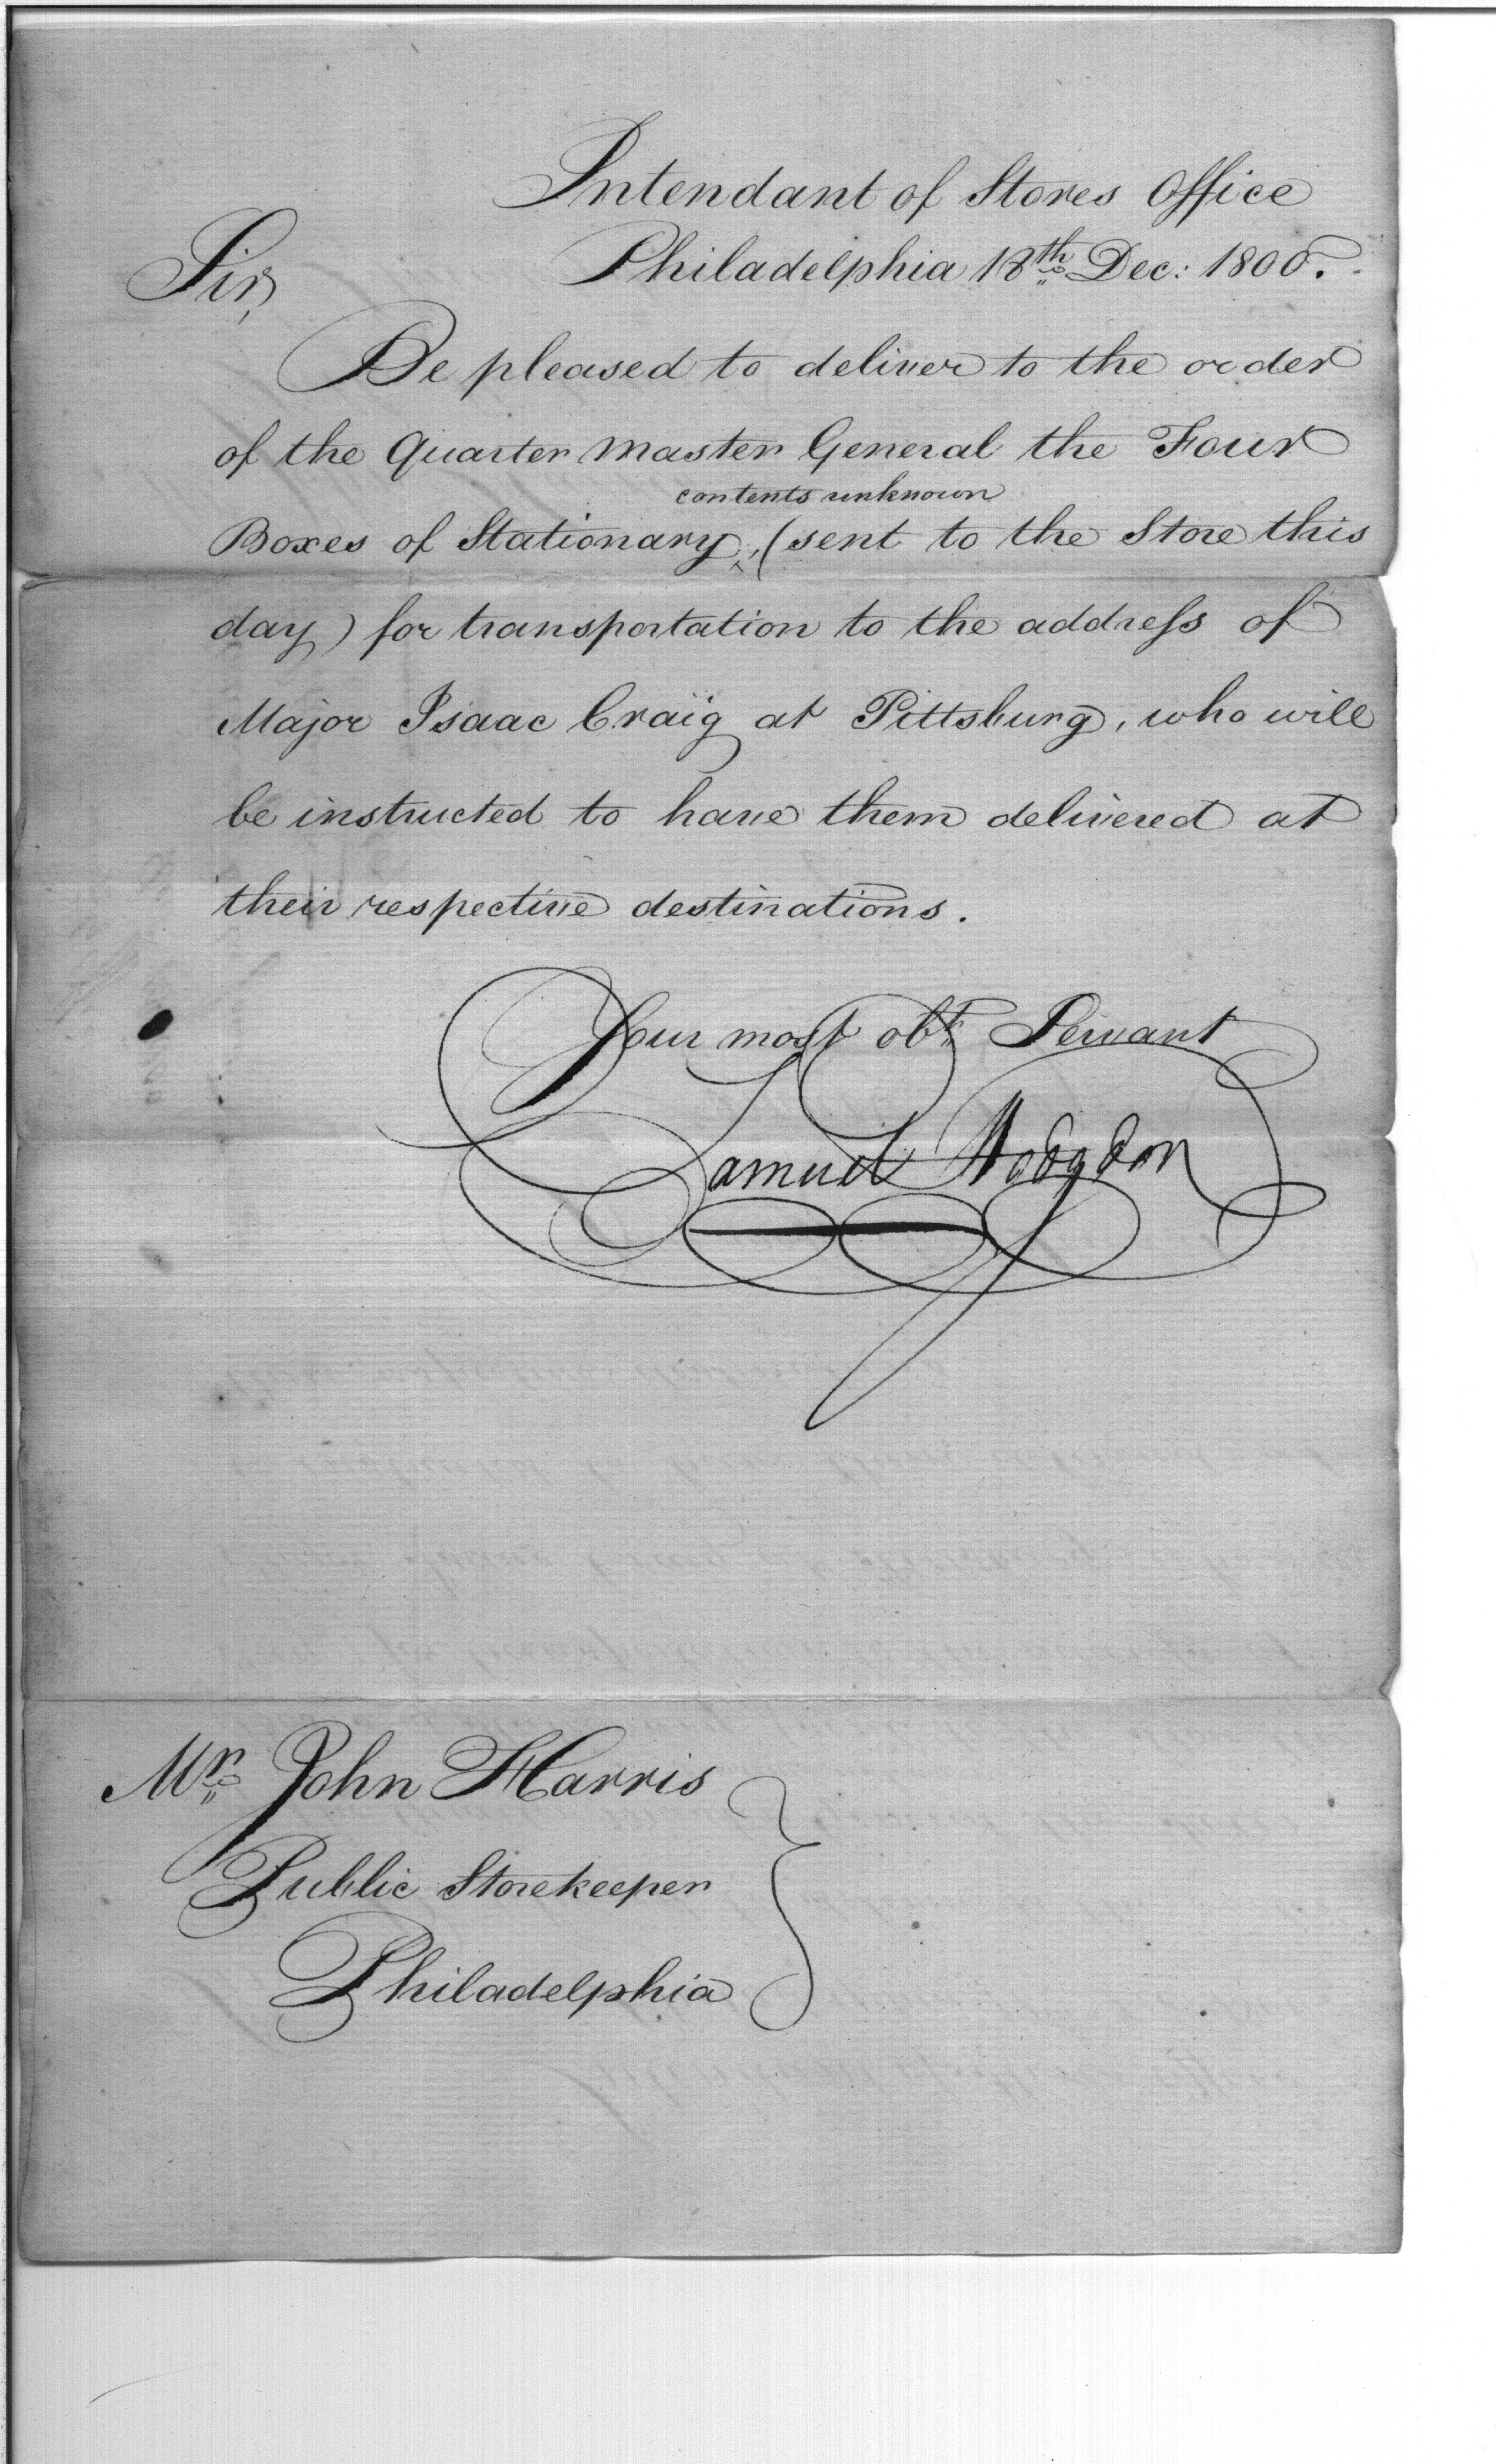 Intendant of Stores Office
Philadelphia 18th Dec: 1800.
Sir,
Be pleased to deliver to the order
of the Quarter Master General the Four
contents unknown
Boxes of Stationary, ^ (sent to the Store this
day) for transportation to the address of
Major Isaac Craig at Pittsburg, who will
be instructed to have them delivered at
their respective destinations.
Your most obt. Servant
Samuel Hodgdon
Mr. John Harris
Public Storekeeper
Philadelphia